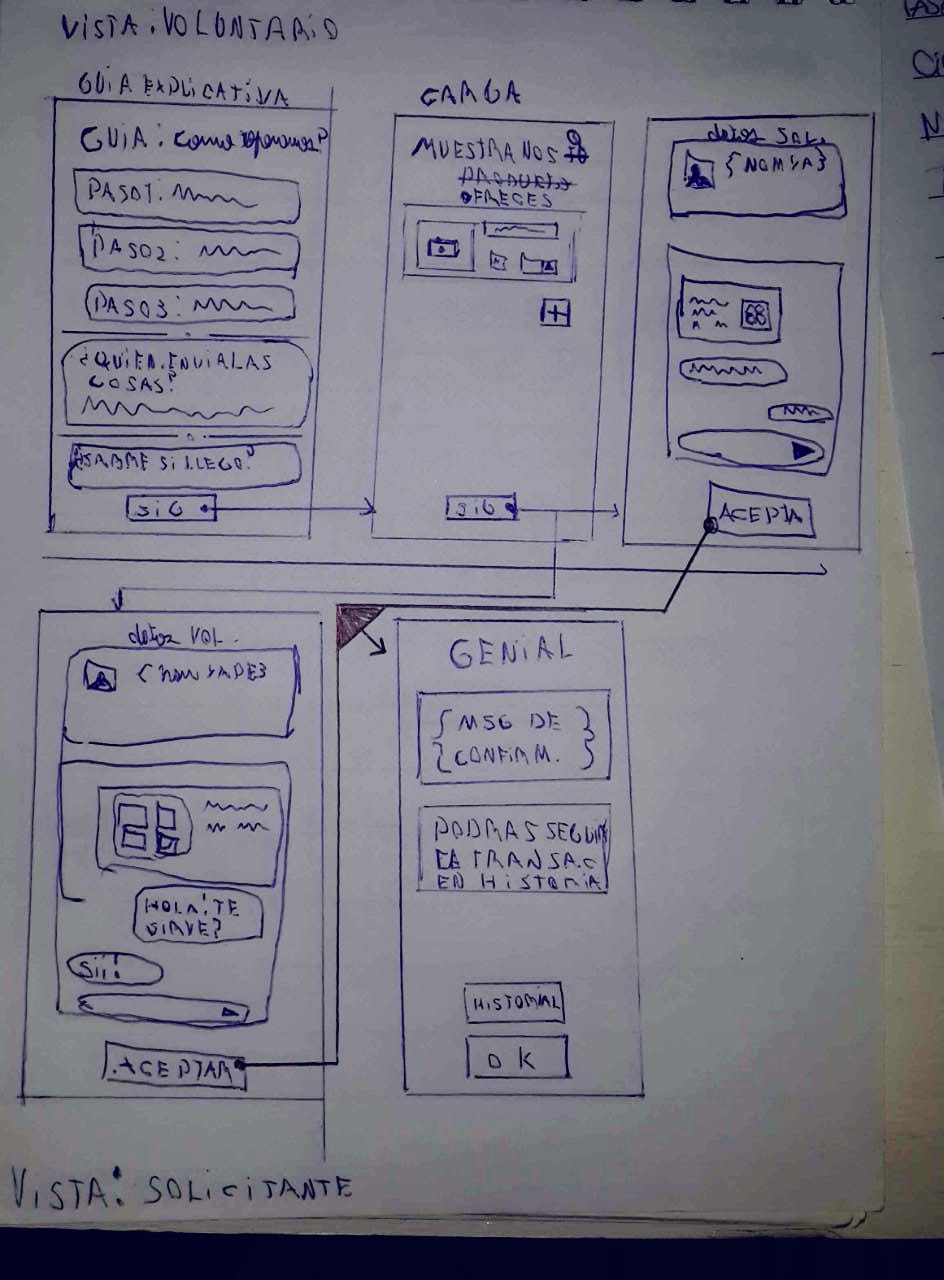 VISTA: VOLUNTARIO
GUIA EXPLICATIVA
GUIA: Como operamos?
PASO1:
PASO2:
PASO3:
¿QUIEN ENVIA LAS
COSAS?
SABRE SI LLEGO?
SIG
CARGA
MUESTRANOS Q
PRODUCTO
OFRECES
SIG
datos SOL.
{NOM YA}
ACEPTA
datos VOL.
{NOM YAPE}
HOLA! TE
SIRVE?
Sii!
ACEPTAR
GENIAL
{MSG DE}
{CONFIRM.}
PODRAS SEGUIR
LA TRANSAC
EN HISTORIA
HISTORIAL
OK
VISTA: SOLICITANTE
Ci
N